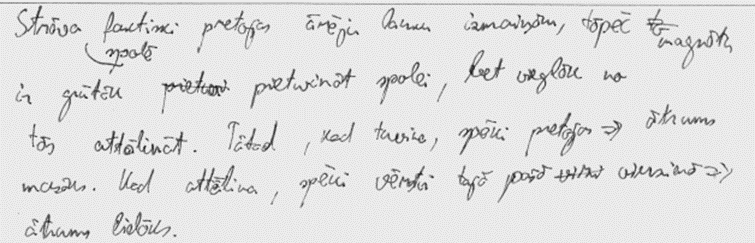 Strāva faktiski pretojas ārējā lauka izmaiņām, tāpēc magnētu
spolē
ir grūtāk pietuvināt spolei, bet vieglāk no
tās attālināt. Tātad, kad tuvina, spēki pretojas ⇒ ātrums
mazāks. Kad attālina, spēki vērsti tajā pašā virzienā ⇒
ātrums lielāks.